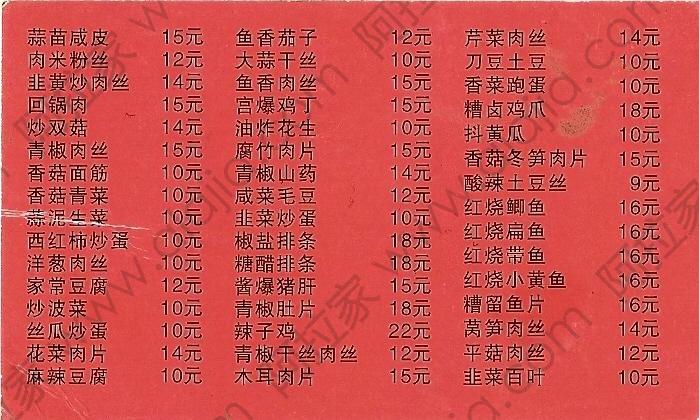 蒜苗咸皮 15元
肉米粉丝 12元
韭黄炒肉丝 14元
回锅肉 15元
炒双菇 14元
青椒肉丝 15元
香菇面筋 10元
香菇青菜 10元
蒜泥生菜 10元
西红柿炒蛋 10元
洋葱肉丝 10元
家常豆腐 12元
炒菠菜 10元
丝瓜炒蛋 10元
花菜肉片 14元
麻辣豆腐 10元
鱼香茄子 12元
大蒜干丝 10元
鱼香肉丝 15元
宫爆鸡丁 15元
油炸花生 10元
腐竹肉片 15元
青椒山药 14元
咸菜毛豆 12元
韭菜炒蛋 10元
椒盐排条 18元
糖醋排条 18元
酱爆猪肝 15元
青椒肚片 18元
辣子鸡 22元
青椒干丝肉丝 12元
木耳肉片 15元
芹菜肉丝 14元
刀豆土豆 10元
香菜跑蛋 10元
糟卤鸡爪 18元
抖黄瓜 10元
香菇冬笋肉片 15元
酸辣土豆丝 9元
红烧鲫鱼 16元
红烧扁鱼 16元
红烧带鱼 16元
红烧小黄鱼 16元
糟留鱼片 16元
莴笋肉丝 14元
平菇肉丝 12元
韭菜百叶 10元
阿拉家 www.alajia.com